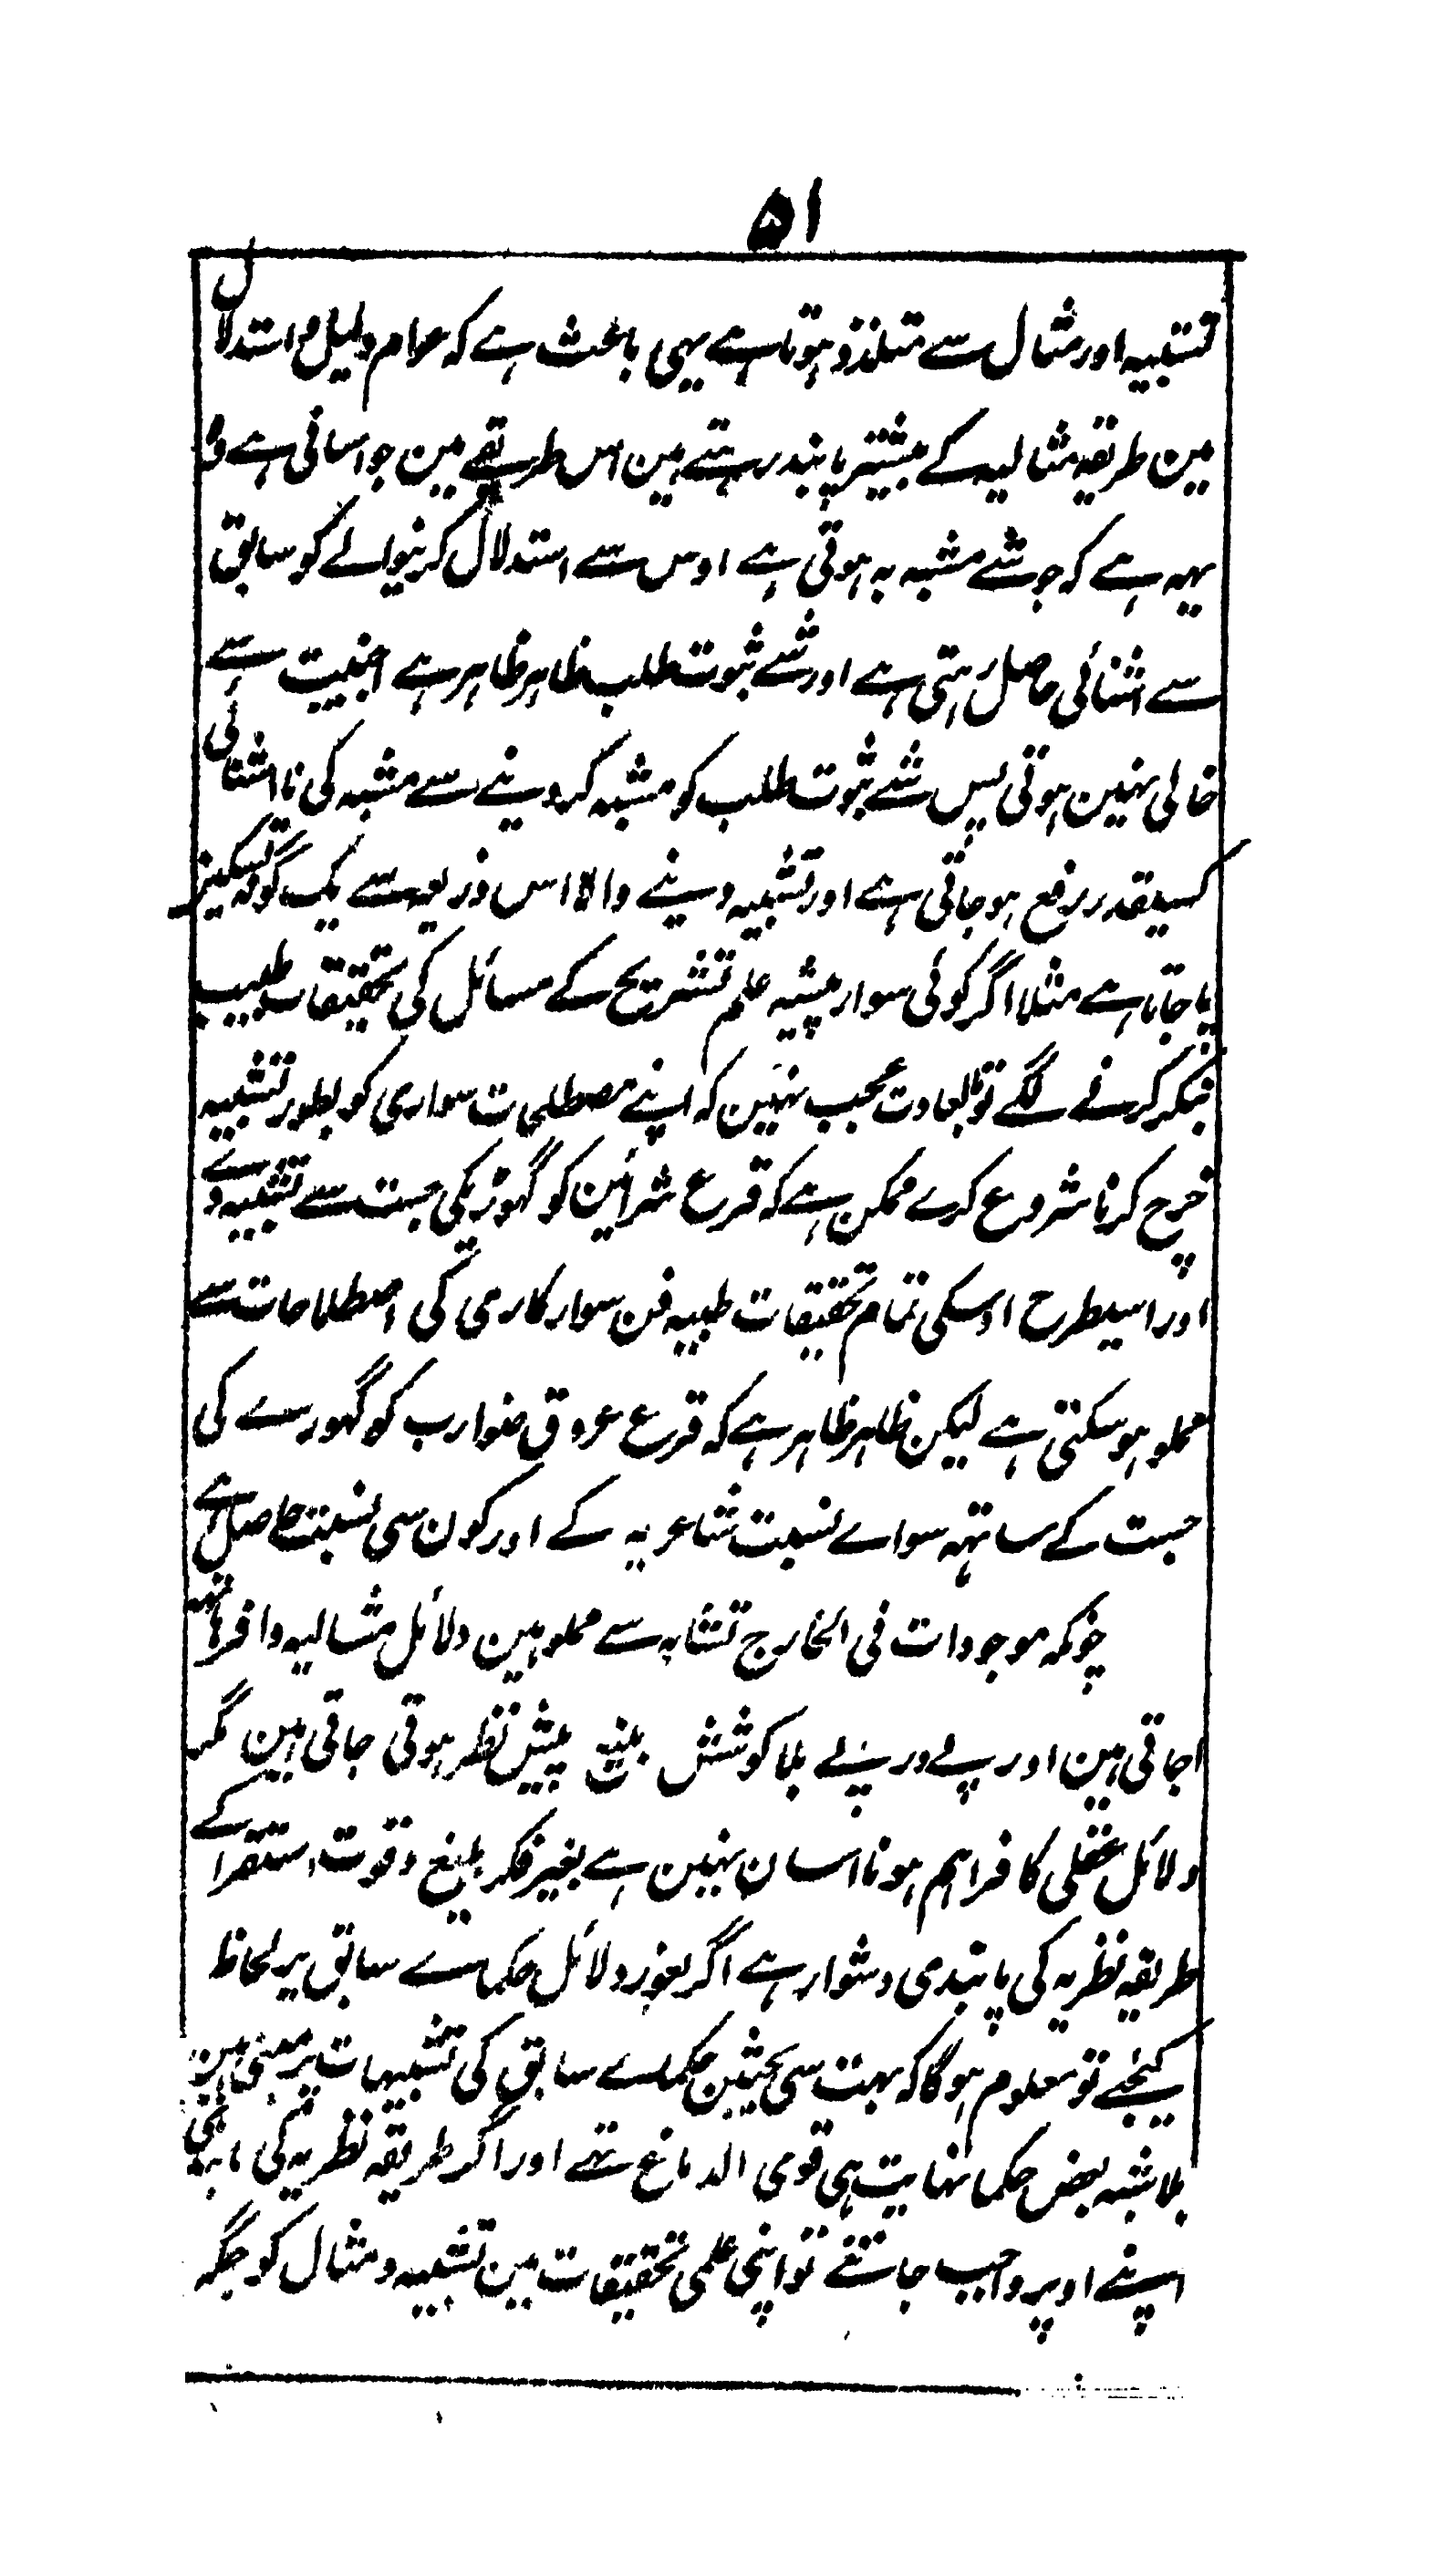 ۵۱
تشبیہ اور مثال سے متلذذ ہوتا ہے یہی باعث ہے کہ عوام دلیل و استدلال
مین طریقہ مثالیہ کے بیشتر پابند رہتے ہین اس طریقے مین جو اسانی ہے وہ
یہہ ہے کہ جو شے مشبہ بہ ہوتی ہے اوس سے استدلال کرنیوالے کو سابق
سے اشنائی حاصل رہتی ہے اور شے ثبوت طلب ظاہر ظاہر ہے اجنبیت سے
خالی نہین ہوتی پس شے ثبوت طلب کو مشبہ کر دینے سے مشبہ کی نااشنائی
کسیقدر رفع ہو جاتی ہے اور تشبیہ دینے والا اس ذریعہ سے یک گونہ تسکین
پا جاتا ہے مثلا اگر کوئی سوار پیشہ علم تشریح کے مسائل کی تحقیقات طبیب
بنکر کرنے لگے تو بلعادت عجب نہین کہ اپنے مصطلحات سواری کو بطور تشبیہ
خرچ کرنا شروع کرے ممکن ہے کہ قرع شرائین کو گھوڑیکی جست سے تشبیہ دے
اور اسیطرح اوسکی تمام تحقیقات طبیہ فن سوار کاری کی اصطلاحات سے
مملو ہو سکتی ہے لیکن ظاہر ظاہر ہے کہ قرع عروق ضوارب کو گہورے کی
جست کے ساتہہ سواے نسبت شاعریہ کے اور کون سی نسبت حاصل ہے
چونکہ موجودات فی الخارج تشابہ سے مملو ہین دلائل مثالیہ وافر ہاتھہ
اجاتی ہین اور پے در پے بلا کوشش پیش نظر ہوتی جاتی ہین مگر
دلائل عقلی کا فراہم ہونا اسان نہین ہے بغیر فکر بلیغ و قوت استقرا کے
طریقہ نظریہ کی پابندی دشوار ہے اگر بغور دلائل حکماے سابق پر لحاظ
کیجئے تو معلوم ہوگا کہ بہت سی بحثین حکماے سابق کی تشبیہات پر مبنی ہین
بلا شبہ بعض حکما نہایت ہی قوی الدماغ تہے اور اگر طریقہ نظریہ کی پابندی
اپنے اوپر واجب جانتے تو اپنی علمی تحقیقات مین تشبیہ و مثال کو جگہ